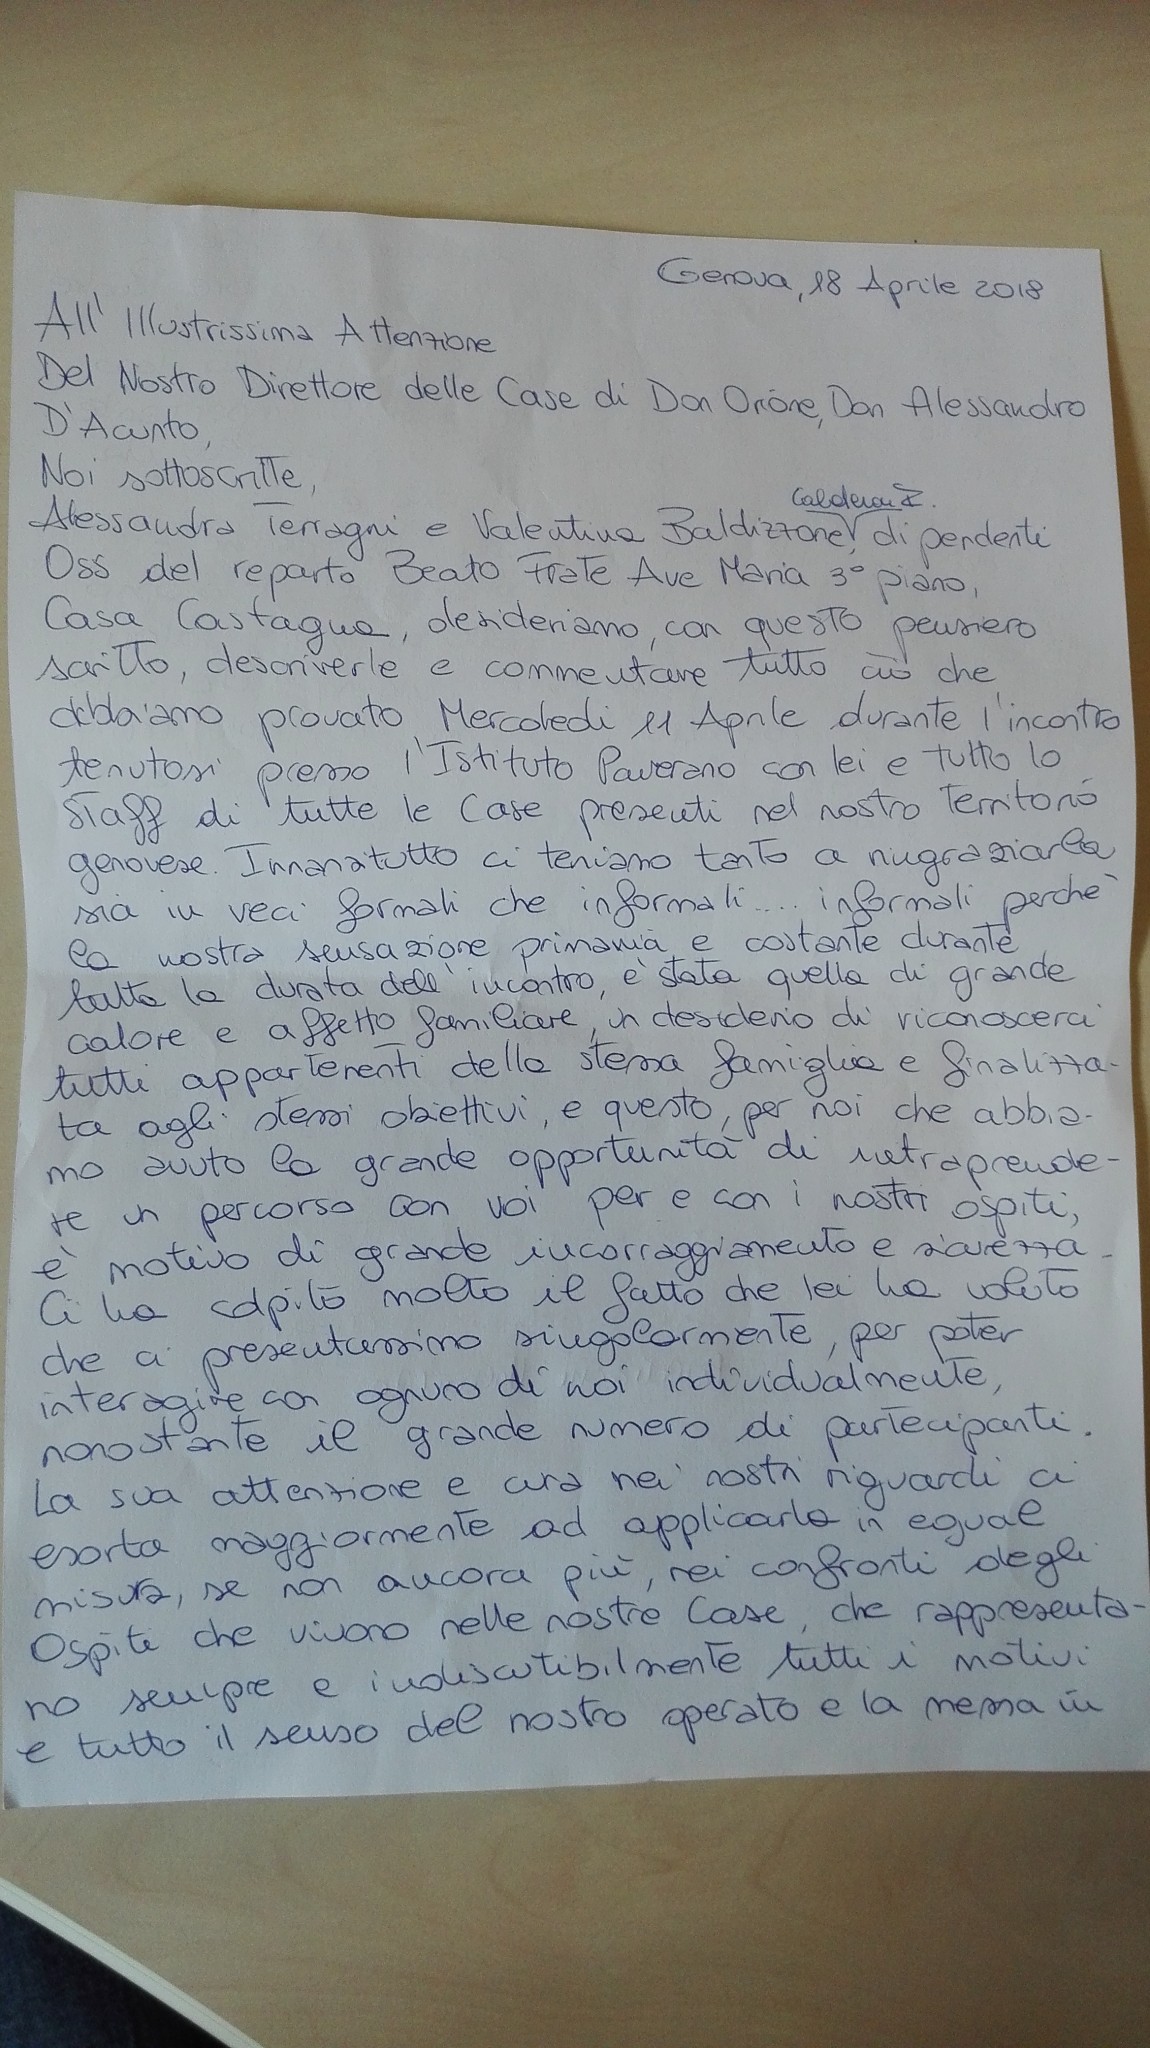 Genova, 18 Aprile 2018
All' Illustrissima Attenzione
Del Nostro Direttore delle Case di Don Orione, Don Alessandro
D'Acunto,
Noi sottoscritte,
Alessandra Terragni e Valentina Baldizzone, dipendenti
Oss del reparto Beato Frate Ave Maria 3° piano,
Casa Castagna, desideriamo, con questo pensiero
scritto, descriverle e commentare tutto ciò che
abbiamo provato Mercoledì 11 Aprile durante l'incontro
tenutosi presso l'Istituto Paverano con lei e tutto lo
staff di tutte le Case presenti nel nostro territorio
genovese. Innanzitutto ci teniamo tanto a ringraziarla
sia in veci formali che informali.... informali perchè
la nostra sensazione primaria e costante durante
tutta la durata dell'incontro, è stata quella di grande
calore e affetto familiare, un desiderio di riconoscerci
tutti appartenenti della stessa famiglia e finalizza-
ta agli stessi obiettivi, e questo, per noi che abbia-
mo avuto la grande opportunità di intraprende-
re un percorso con voi per e con i nostri ospiti,
è motivo di grande incorraggiamento e sicurezza.
Ci ha colpito molto il fatto che lei ha voluto
che ci presentassimo singolarmente, per poter
interagire con ognuno di noi individualmente,
nonostante il grande numero di partecipanti.
La sua attenzione e cura nei nostri riguardi ci
esorta maggiormente ad applicarla in egual
misura, se non ancora più, nei confronti degli
Ospiti che vivono nelle nostre Case, che rappresenta-
no sempre e indiscutibilmente tutti i motivi
e tutto il senso del nostro operato e la messa in